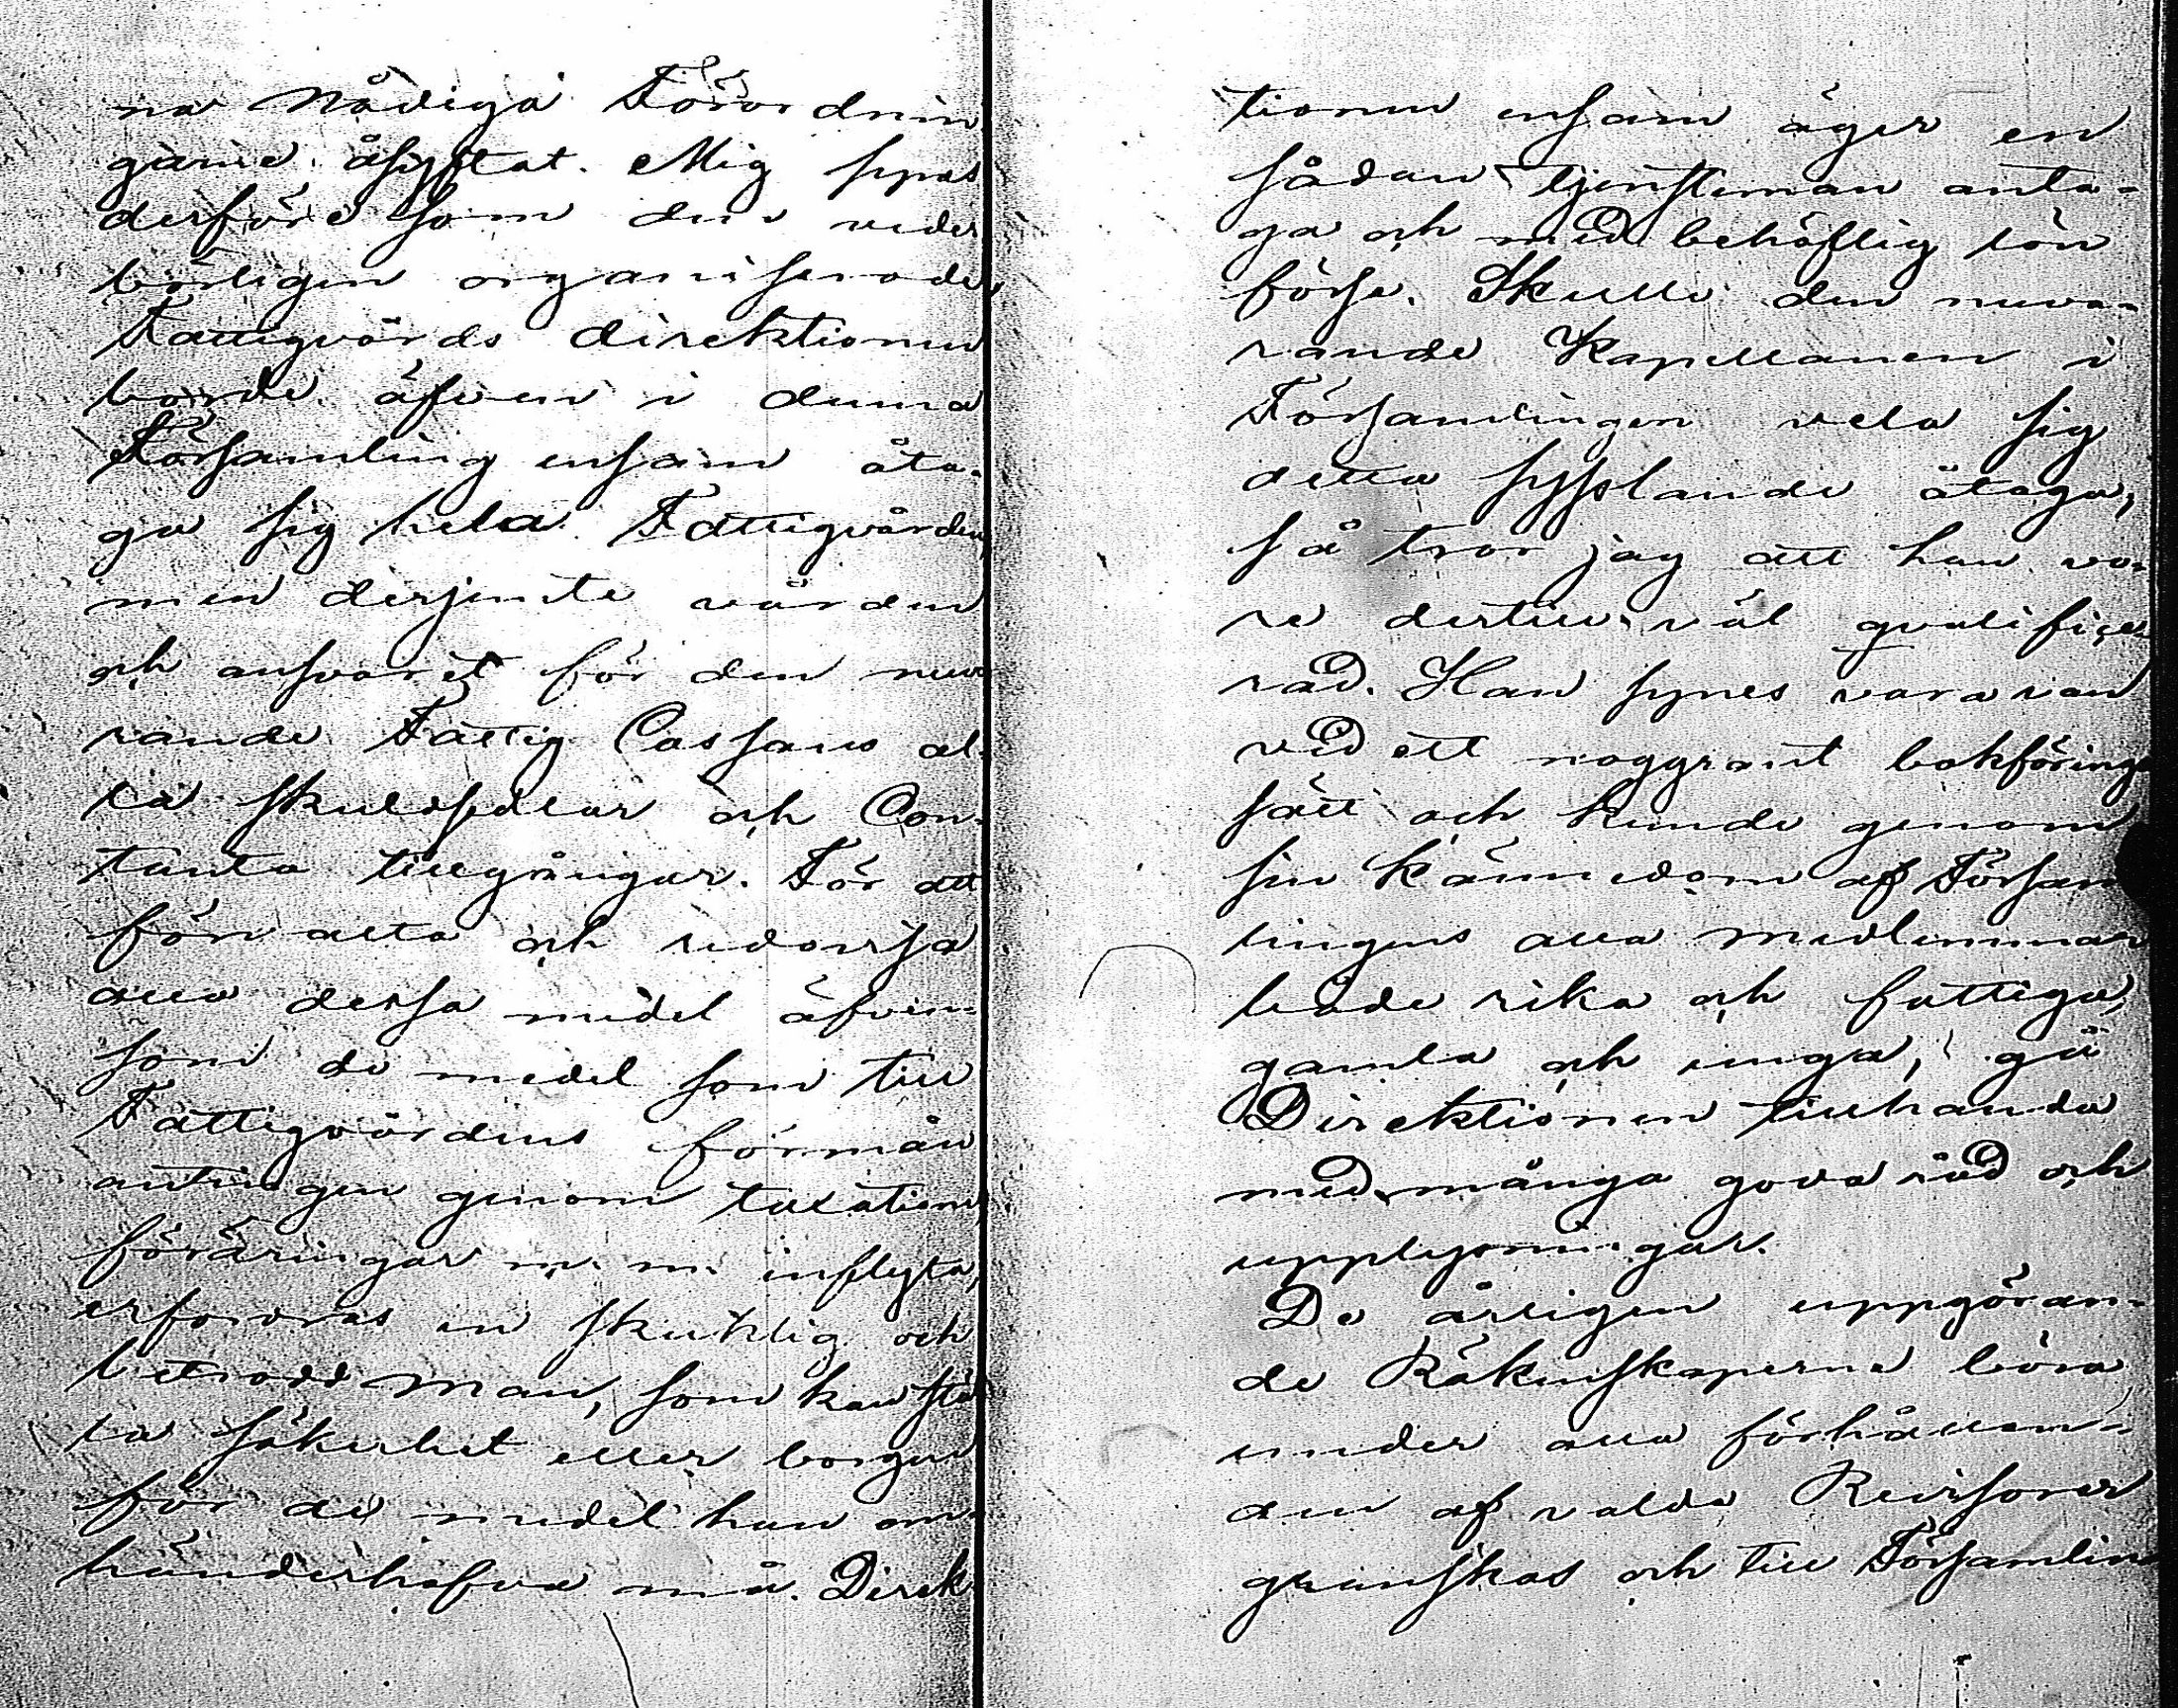 na Nådiga Förordnin
garne åsyftat. Mig synas
derföre som den veder
börligen organiserade
Fattigvårds direktionen
borde äfven i denna
Församling ensam åta-
ga sig hela Fattigvården
men derjemte vården
och ansvaret för den nuva
rande Fattig Cassans al-
la skuldsedlar och Con-
tanta tillgångar. För att
förvalta och redovisa
alla dessa medel äfven-
som de medel som till
Fattigvårdens förmån
antingen genom taxation,
föräringar m. m. inflyta,
erfordras en skicklig och
betrodd man, som kan stä
la säkerhet eller borgen
för de medel han om-
händerhafva må. Direk
tionen ensam äger en
sådan tjensteman anta-
ga och med behöflig lön
förse. Skulle den nuva-
rande Kapellanen i
Församlingen vela sig
detta sysslande åtaga,
så tror jag att han vo-
re dertill väl qvalifice-
rad. Han synes vara van
vid ett noggrant bokförings
sätt och kunde genom
sin kännedom af Försam
lingens alla medlemmar
både rika och fattiga,
gamla och unga, gå
Direktionen tillhanda
med många goda råd och
upplysningar.
De årligen uppgöran-
de Räkenskaperna böra
under alla förhållan-
den af valda Revisorer
granskas och till Församling